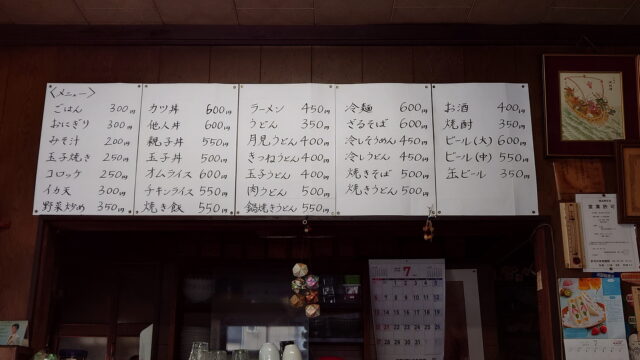 <メニュー>
ごはん 300円
おにぎり 300円
みそ汁 200円
玉子焼き 250円
コロッケ 250円
イカ天 300円
野菜炒め 350円
カツ丼 600円
他人丼 600円
親子丼 550円
玉子丼 500円
オムライス 600円
チキンライス 550円
焼き飯 550円
ラーメン 450円
うどん 350円
月見うどん 400円
きつねうどん 400円
玉子うどん 400円
肉うどん 500円
鍋焼きうどん 550円
冷麺 600円
ざるそば 600円
冷しそうめん 450円
冷しうどん 450円
焼きそば 500円
焼きうどん 500円
お酒 400円
焼酎 350円
ビール(大) 600円
ビール(中) 550円
缶ビール 350円
営業許可
7